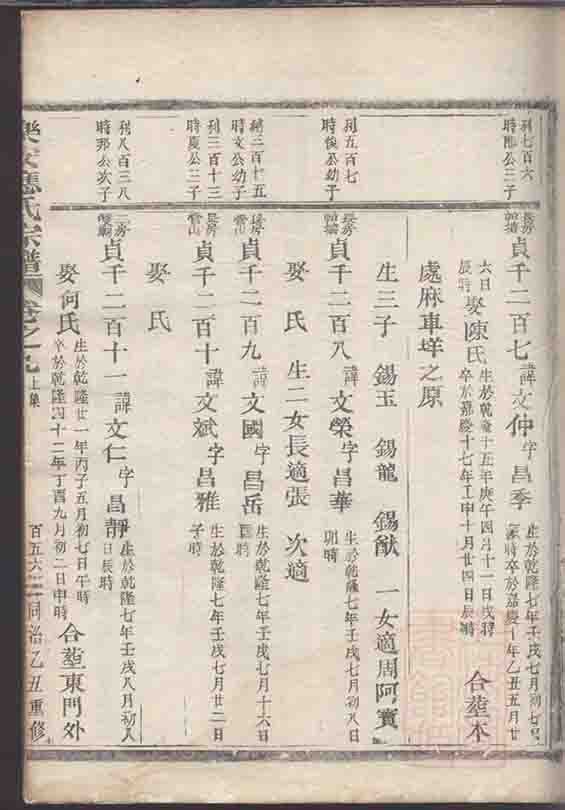 列七百六
時
公三子
長房
貞千二百七 諱文仲 字昌季 生於乾隆七年壬戌七月初七
時卒於嘉慶十年乙丑五月廿
六日
辰時 娶陳氏 生於乾隆十五年庚午四月十一日戌時
卒於嘉慶十七年壬申十月廿四日辰時 合塟本
處麻車垟之原
生三子 錫玉 錫龍 錫猷 一女適周阿寶
列五百七
時俊公幼子
長房
貞千二百八 諱文榮 字昌華 生於乾隆七年壬戌七月初八日
卯時
娶 氏 生二女長適張 次適
列二百十五
時文公幼子
長房
貞千二百九 諱文國 字昌岳 生於乾隆七年壬戌七月十六日
時
列三百十三
時夏公三子
長房
貞千二百十 諱文斌 字昌雅 生於乾隆七年壬戌七月廿二日
子時
娶 氏
列八百三八
時邦公次子
二房
貞千二百十一 諱文仁 字昌靜 生於乾隆七年壬戌八月初八
日辰時
娶何氏 生於乾隆廿一年丙子五月初七日午時
卒於乾隆四十二年丁酉九月初二日申時 合塟東門外
樂安應氏宗譜 卷之九上集 百五六 同治乙丑重修